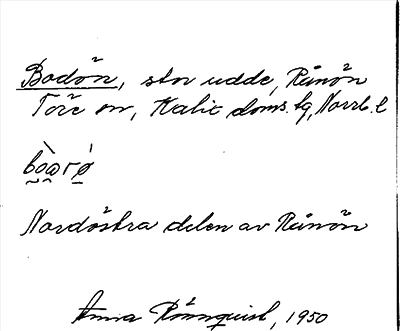 Bodön, stor udde, Rånön
Töre sn, Kalix doms. tg, Norrb. l
Nordöstra delen av Rånön
Anna Rönnquist, 1950